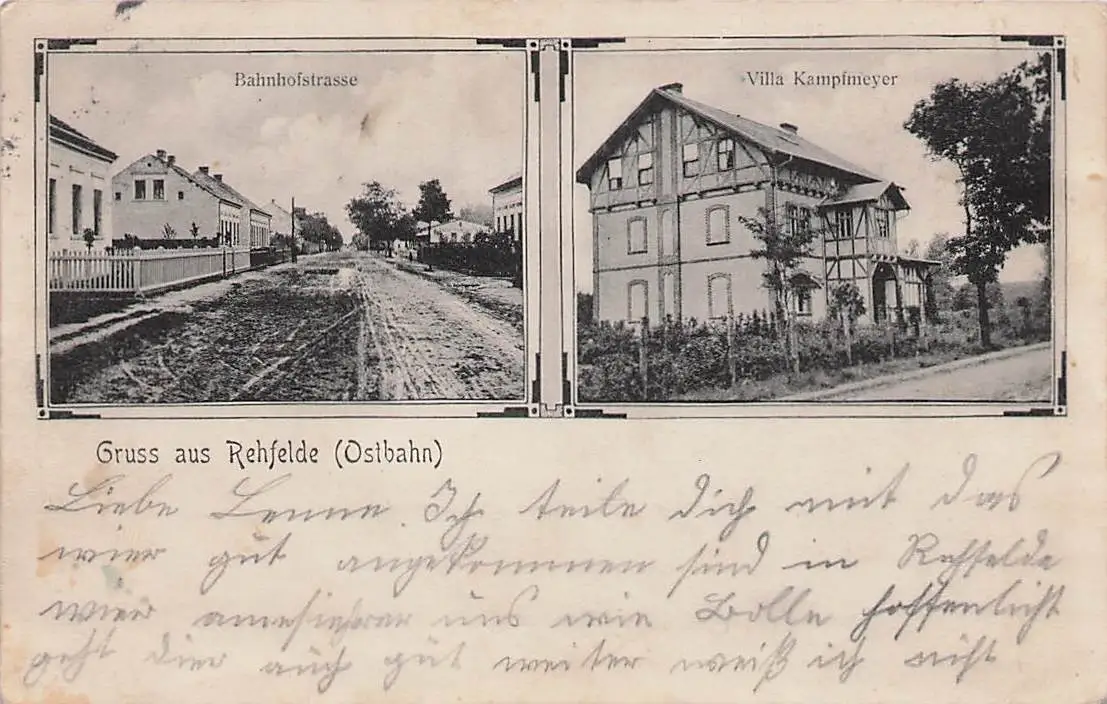 Bahnhofstrasse
Villa Kampfmeyer
Gruss aus Rehfelde (Ostbahn)
Liebe Lenne. Ich teile dich mit das
wier gut angekommen sind in Rehfelde
wier amesiehrer uns wie Bolle hoffenlicht
geht dier auch gut weiter weiß ich nicht